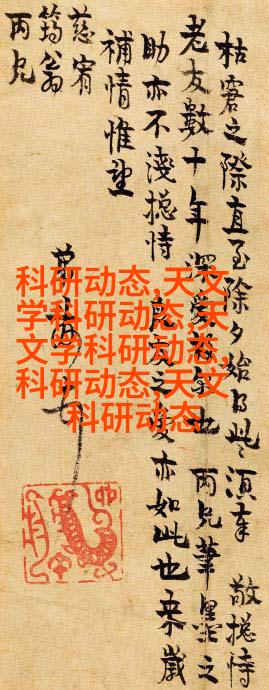 枯窘之際直至除夕始此 敬恃
老友數十年深也 丙兄筆墨之
助亦不淺恃 之亦如此也來歲
補情惟望
慈宥
筠翁
丙兄
弟
科研动态,天文
学科研动态,天
文学科研动态,
科研动态,天文
科研动态